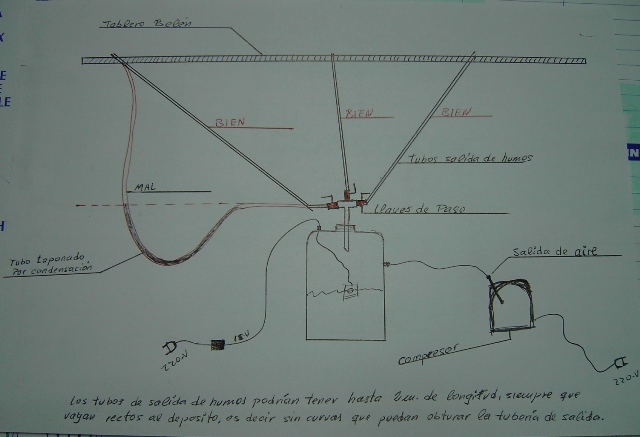 Tablero Belén
BIEN
BIEN
BIEN
Tubos salida de humos
MAL
Llaves de Paso
Tubo taponado
Por condensación
Salida de aire
15.V
220.V
compresor
220.V
Los tubos de salida de humos podrían tener hasta 2m. de longitud, siempre que
vayan rectos al deposito, es decir sin curvas que puedan obturar la tubería de salida.